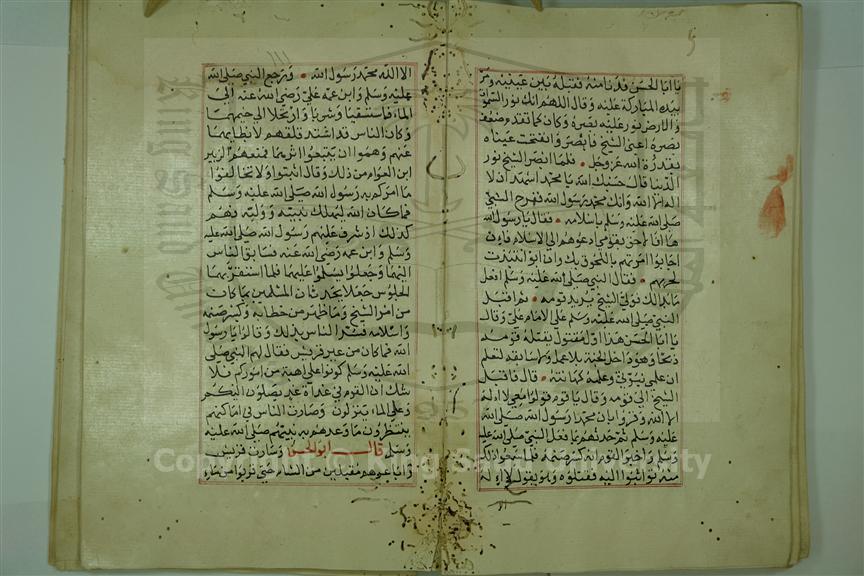 يا ابا الحسن فدنا منه فقبله بين عينيه ومر
بيده المباركة عليه وقال اللهم انك نور السموات
والارض نور عليه بصره وكان كما تقدم ضعف
بصره اعني الشيخ فابصر وانفتحت عيناه
بقدرة الله عز وجل فلما ابصر الشيخ نور
الدنيا قال حسبك الله يا محمد اشهد ان لا
اله الا الله وانك محمد رسول الله ففرح النبي
صلى الله عليه وسلم باسلامه فقال يا رسول الله
ها انا لاحق بقومي ادعوهم الي الاسلام فان
اجابوا امرتهم باللحوق بك وان ابوا
لحربهم فقال النبي صلى الله عليه وسلم افعل
ما بدا لك فولي الشيخ يريد قومه ثم اقبل
النبي صلى الله عليه وسلم على الامام علي وقال
يا ابا الحسن هذا اول مقتول يقتله قومه
ذبحا وهو داخل الجنة بلا عمل
ان علمي نبوتي وعلمه كهانته قال فاقبل
الشيخ الي قومه وقال يا قوم قولوا معي لا اله
الا الله وقروا بان محمدا رسول الله صلى الله
عليه وسلم ثم حدثهم بما فعل النبي صلى الله عليه
وسلم واخبر القوم انه كبر صنمه فلما سمعوا ذلك
منه وثبوا اليه فقتلوه وهو يقول لا اله
الا الله محمد رسول الله ورجع النبي صلى الله
عليه وسلم وابن عمه علي رضي الله عنه الى
الماء فاستقيا وشربا وارتحلا الى جيشهما
وكان الناس قد اشتد قلقهم لابطائهما
عنهم وهموا ان يتبعوا اثرهما فمنعهم الزبير
ابن العوام من ذلك وقال اثبتوا ولا تخالفوا
ما امركم به رسول الله صلى الله عليه وسلم
فما كان الله ليهلك نبيه ووليه فهم
كذلك اذ شرف عليهم رسول الله صلى الله عليه
وسلم وابن عمه رضي الله عنه فسابق الناس
اليهما وجعلوا يسلموا عليهما فلما استقر بهما
الجلوس جعلا يحدثان المسلمين بما كان
من امر الشيخ وما ظهر من خطابه وكبر صنمه
واسلامه فسر الناس بذلك وقالوا يا رسول
الله فما كان من عير قريش فقال لهم النبي صلى
الله عليه وسلم كونوا على اهبة من اموركم فلا
شك ان القوم في غداة غد يصلون اليكم
وعلى الماء ينزلون وصارت الناس في اماكنهم
ينتظرون ما وعدهم به نبيهم صلى الله عليه
وسلم قال ابو الحسن وسارت قريش
واتباعهم مقبلين من الشام حتى قربوا من